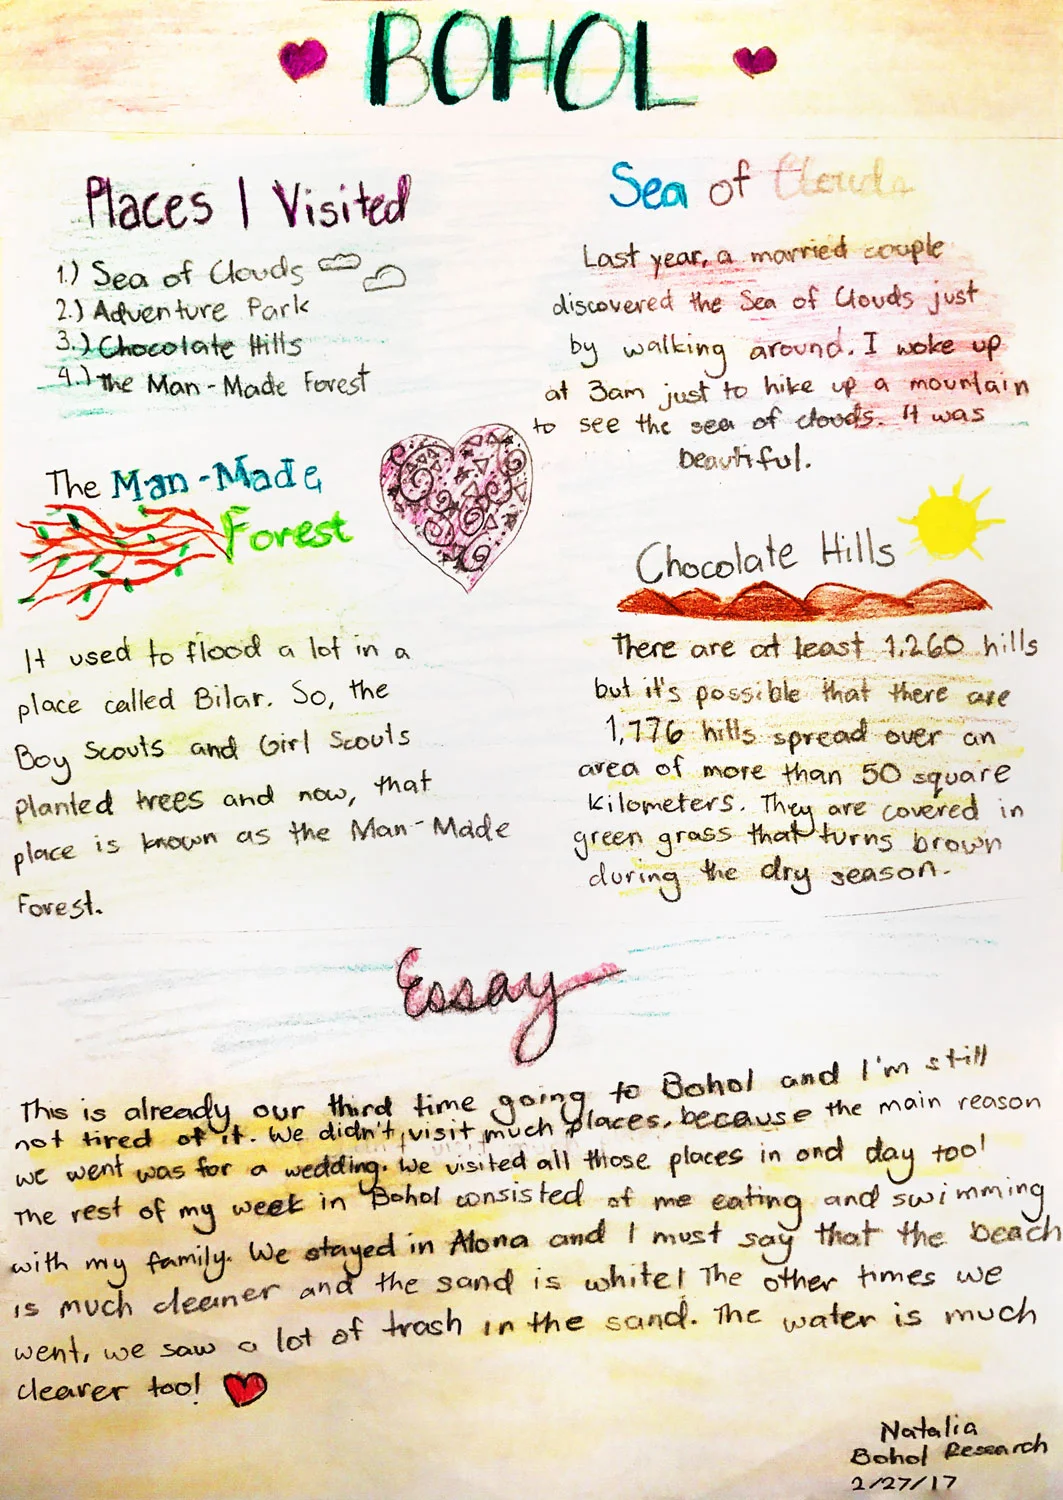 BOHOL
Places I Visited
1.) Sea of Clouds
2.) Adventure Park
3.) Chocolate Hills
4.) The Man-Made Forest
The Man-Made
Forest
It used to flood a lot in a
place called Bilar. So, the
Boy Scouts and Girl Scouts
planted trees and now, that
place is known as the Man-Made
Forest.
Sea of Clouds
Last year, a married couple
discovered the Sea of Clouds just
by walking around. I woke up
at 3am just to hike up a mountain
to see the sea of clouds. It was
beautiful.
Chocolate Hills
There are at least 1,260 hills
but it's possible that there are
1,776 hills spread over an
area of more than 50 square
kilometers. They are covered in
green grass that turns brown
during the dry season.
Essay
This is already our third time going to Bohol and I'm still
not tired of it. We didn't visit much places, because the main reason
we went was for a wedding. We visited all those places in ond day too!
The rest of my week in Bohol consisted of me eating and swimming
with my family. We stayed in Alona and I must say that the beach
is much cleaner and the sand is white! The other times we
went, we saw a lot of trash in the sand. The water is much
clearer too!
Natalia
Bohol Research
2/27/17